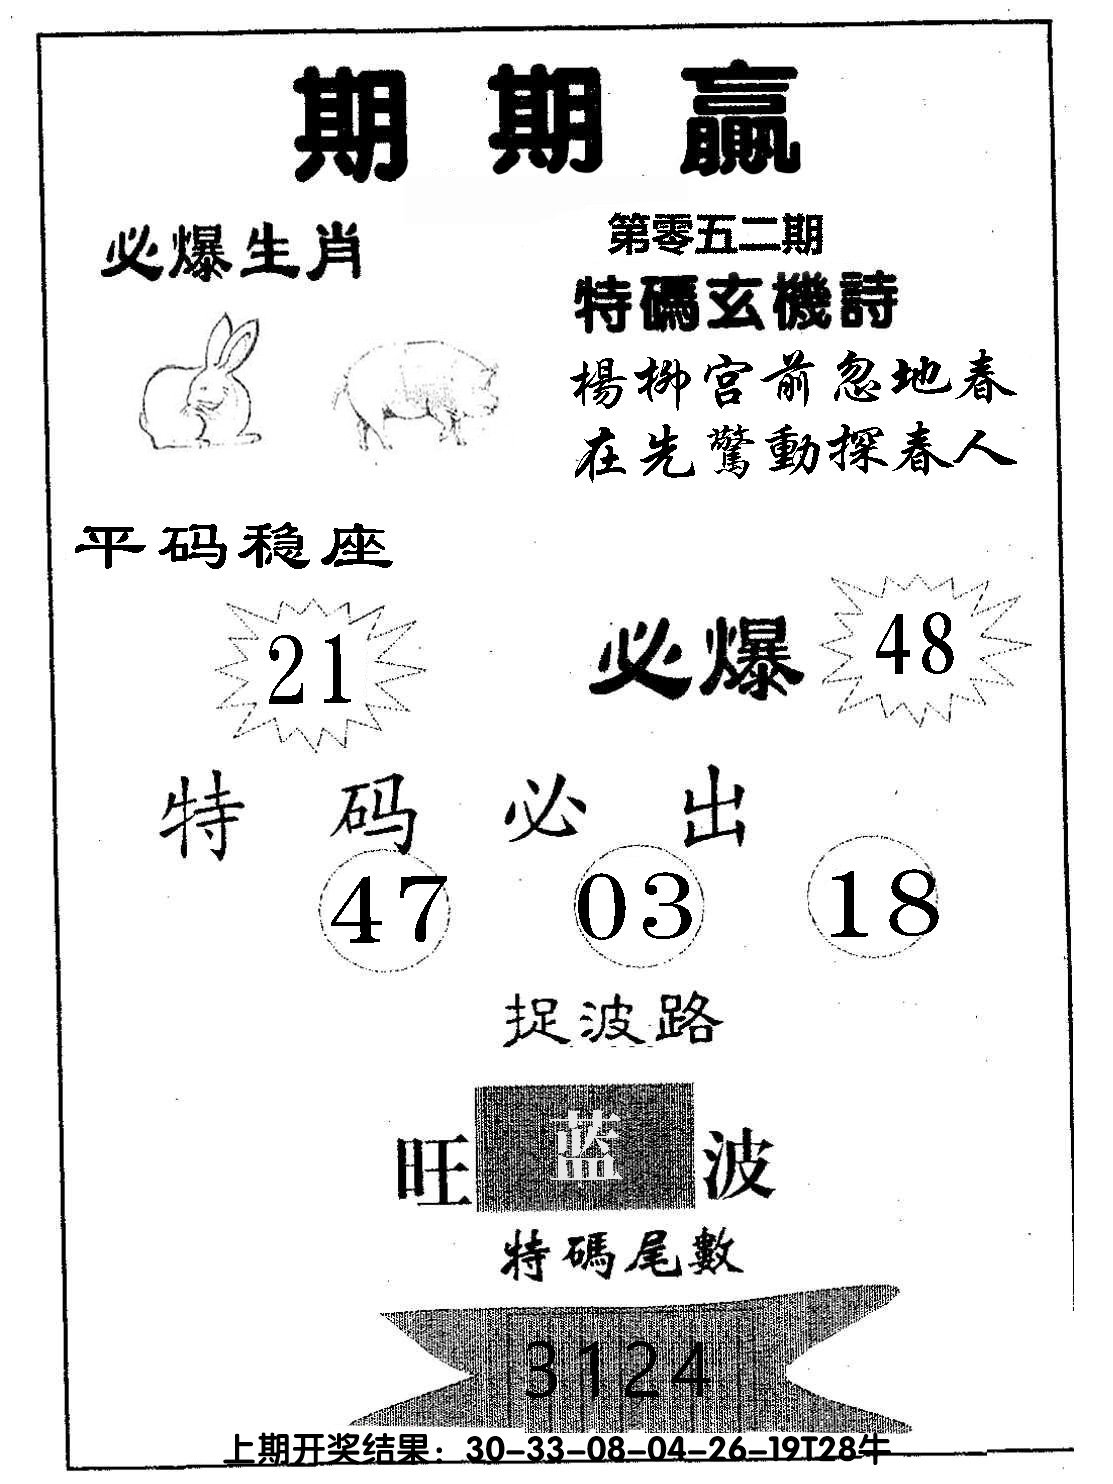 期期赢
必爆生肖
第零五二期
特碼玄機詩
楊柳宫前忽地春
在先驚動探春人
平码稳座
21
必爆 48
特码必出
47 03 18
捉波路
旺 蓝 波
特碼尾數
3124
上期开奖结果：30-33-08-04-26-19T28牛